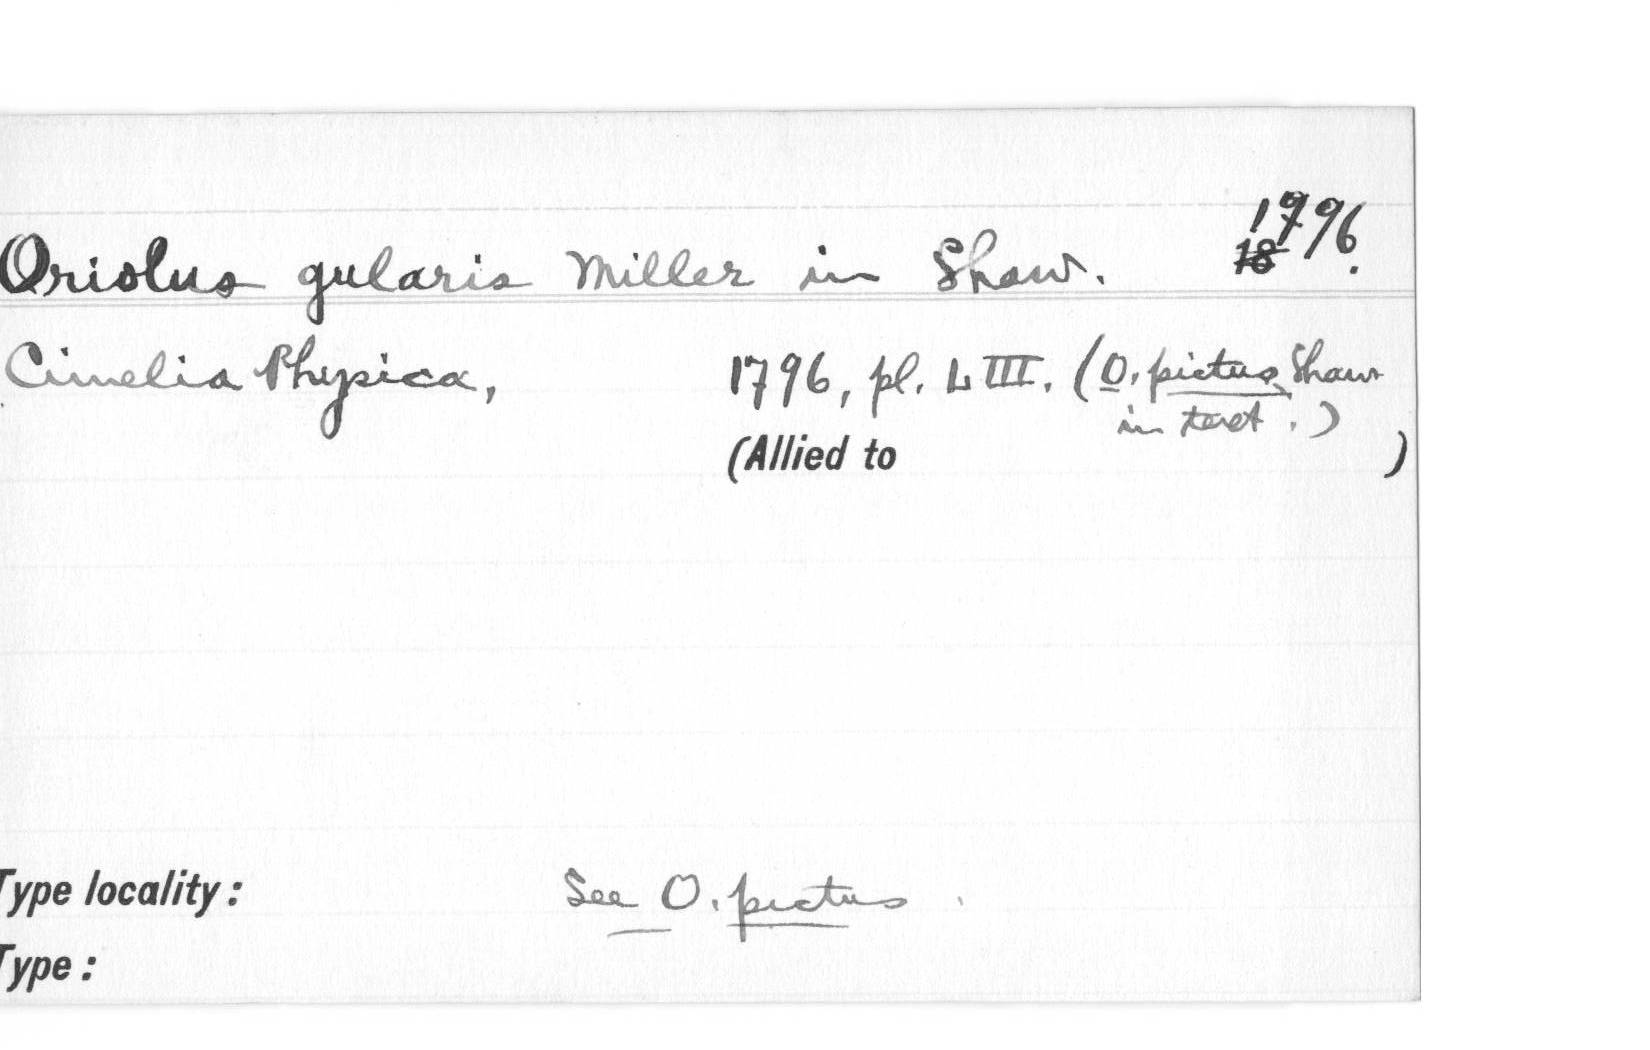 1796.
Oriolus gularis Miller in Shaw. 18
Cimelia Physica, 1796, pl. LIII. (O. pictus Shaw
in text.)
(Allied to )
Type locality: See O. pictus.
Type: